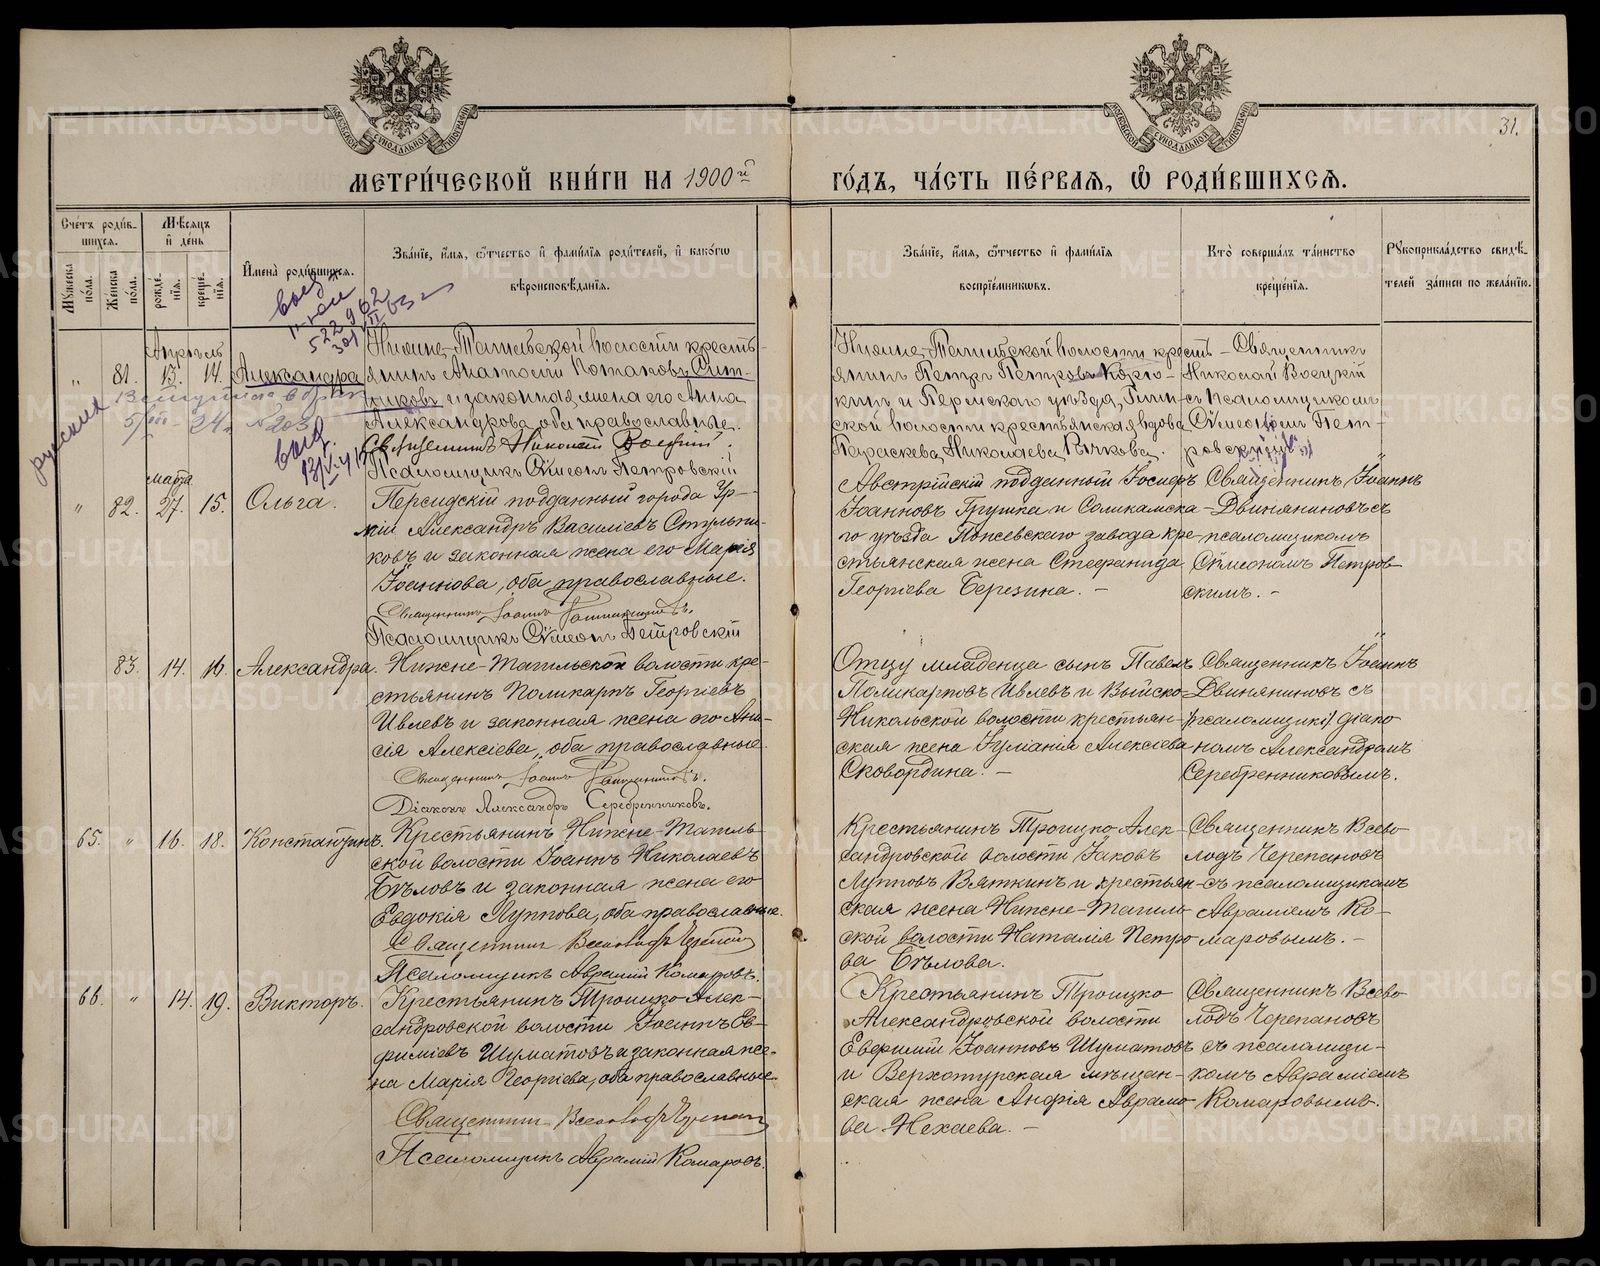 МЕТРИ́ЧЕСКОЙ КНИ́ГИ НА 1900й
ГО́ДЪ, ЧА́СТЬ ПЕ́РВАЯ, Ѡ РОДИ́ВШИХСЯ.
31.
Сче́тъ роди́в-
шихся.
Мѣсяцъ
и де́нь
Мужеска
по́ла.
Женска
по́ла.
рожде́-
нія.
креще́-
нія.
Имена̀ роди́вшихся.
Зва́ніе, и́мя, ѻ́тчество и фами́лія роди́телей, и како́гѡ
вѣроисповѣ́данія.
Зва́ніе, и́мя, ѻ́тчество и фами́лія
воспріе́мниковъ.
Кто̀ соверша́лъ та́инство
креще́нія.
Рукоприкла́дство свидѣ́-
телей за́писи по жела́нію.
Апрѣль
„ 81. 13. 14. Александра
Нижне-Тагильской волости кресть-
янинъ Анатолій Потаповъ Сит-
никовъ и законная жена его Анна
Александрова, оба православные.
Священникъ Николай Воецкій.
Псаломщикъ Сѵмеонъ Петровскій
Нижне-Тагильской волости кресть-
янинъ Петръ Петровъ
и Пермскаго уѣзда,
ской волости крестьянская вдова
Параскева Николаева Рычкова.
Священникъ
Николай Воецкій
съ псаломщикомъ
Сѵмеономъ Пет-
ровскимъ
марта
„ 82. 27. 15. Ольга.
Персидскій подданный города Ур-
міи Александръ Василіевъ Стульни-
ковъ и законная жена его Марія
Іоаннова, оба православные.
Священникъ Іоаннъ
Псаломщикъ Сѵмеонъ Петровскій
Австрійскій подданный Іосифъ
Іоанновъ Грушка и Соликамска-
го уѣзда Пожевскаго завода кре-
стьянская жена Стефанида
Георгіева Березина. –
Священникъ Іоаннъ
Двиняниновъ съ
псаломщикомъ
Сѵмеономъ Петров-
скимъ. –
83. 14. 16. Александра.
Нижне-Тагильской волости кре-
стьянинъ Поликарпъ Георгіевъ
Ивлевъ и законная жена его Ани-
сія Алексіева, оба православные.
Священникъ Іоаннъ
Діаконъ Александръ Серебренниковъ.
Отцу младенца сынъ Павелъ
Поликарповъ Ивлевъ и Выйско-
Никольской волости крестьян-
ская жена Іуліанія Алексіева
Сковордина. –
Священникъ Іоаннъ
Двиняниновъ съ
діако-
номъ Александромъ
Серебренниковымъ.
65. „ 16. 18. Константинъ.
Крестьянинъ Нижне-Тагиль-
ской волости Іоаннъ Николаевъ
Бѣловъ и законная жена его
Евдокія Луппова, оба православные.
Священникъ Всеволодъ Черепановъ
Псаломщикъ Аврамій Комаровъ.
Крестьянинъ Троицко-Алек-
сандровской волости Іаковъ
Лупповъ Вяткинъ и крестьян-
ская жена Нижне-Тагиль-
ской волости Наталія Петро-
ва Бѣлова.
Священникъ Всево-
лодъ Черепановъ
съ псаломщикомъ
Авраміемъ Ко-
маровымъ. –
66. „ 14. 19. Викторъ.
Крестьянинъ Троицко-Алек-
сандровской волости Іоаннъ Ев-
фиміевъ Шуматовъ и законная же-
на Марія Георгіева, оба православные
Священникъ Всеволодъ Черепановъ
Псаломщикъ Аврамій Комаровъ.
Крестьянинъ Троицко
Александровской волости
Евфимій Іоанновъ Шуматовъ
и Верхотурская мѣщан-
ская жена Анфія Аврамо-
ва Нехаева. –
Священникъ Всево-
лодъ Черепановъ
съ псаломщи-
комъ Авраміемъ
Комаровымъ.